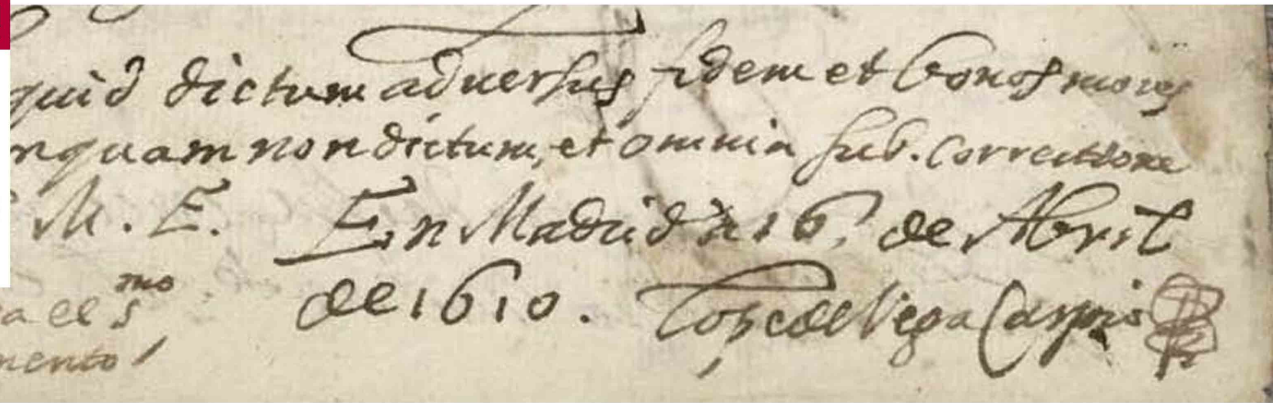 quid dictum adversus fidem et bonos mores
nquam non dictum, et omnia sub. correctione
M. E. En Madrid a 16 de Abril
de 1610. Lope de Vega Carpio
a el s^mo
mento